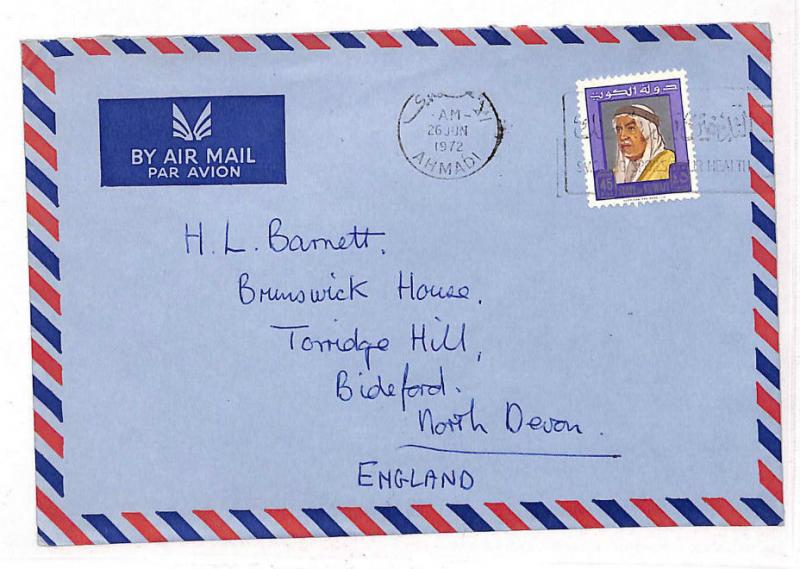 BY AIR MAIL
PAR AVION
AM
26 JUN
1972
AHMADI
دولة الكويت
45
STATE OF KUWAIT
HEALTH
H. L. Barnett.
Brunswick House.
Torridge Hill,
Bideford.
North Devon.
ENGLAND